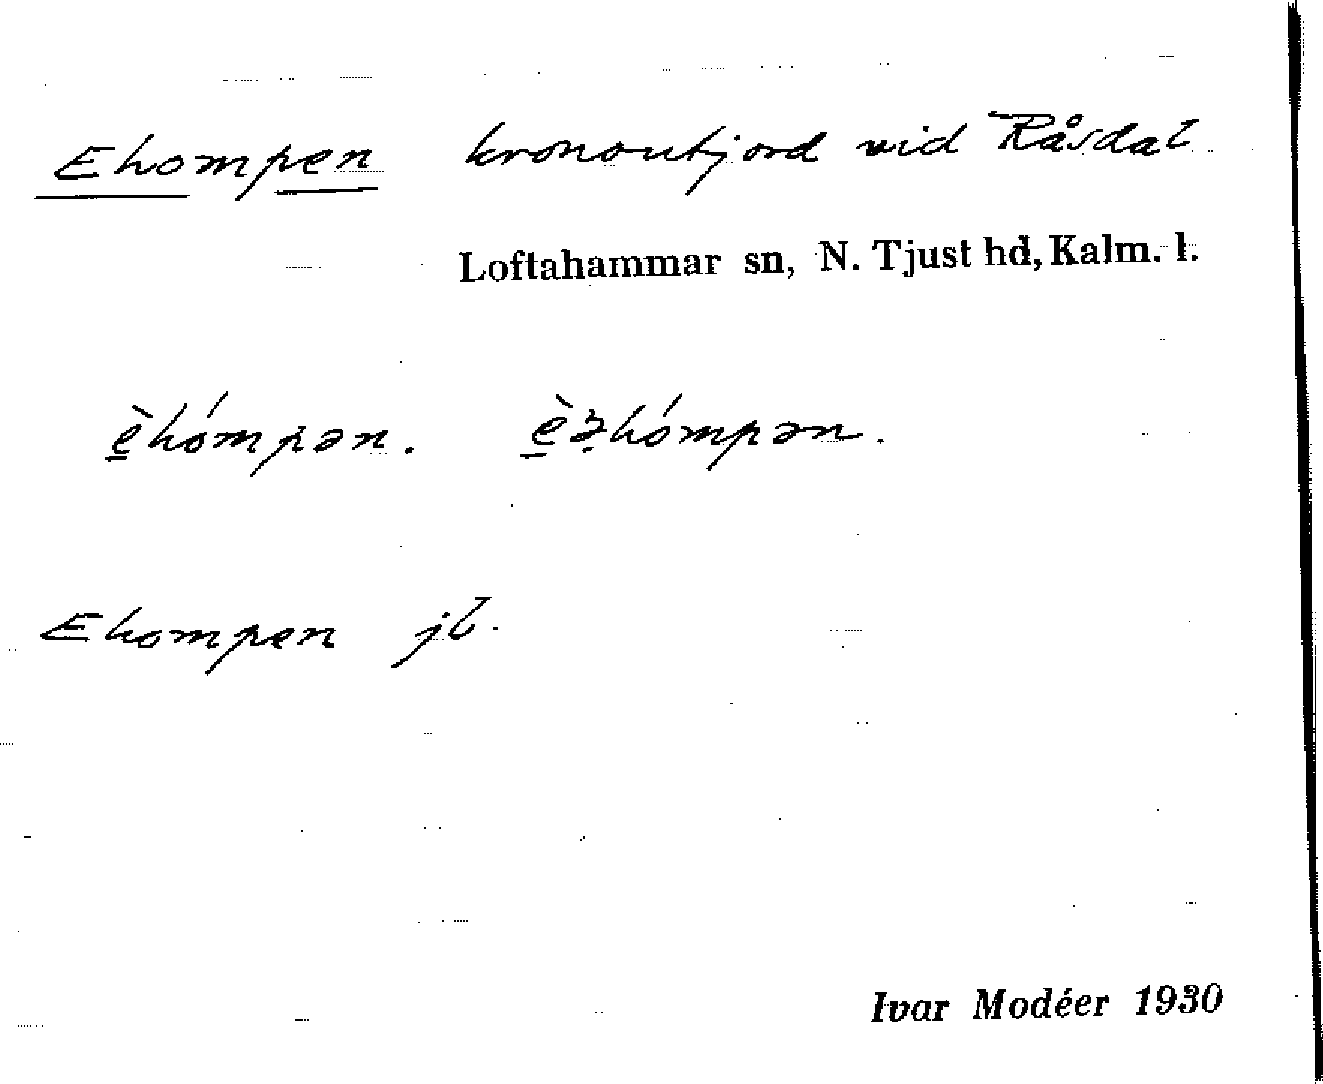 Ekompen kronoutjord vid Råsdal
Loftahammar sn, N. Tjust hd, Kalm. l.
Ekompen jb.
Ivar Modéer 1930